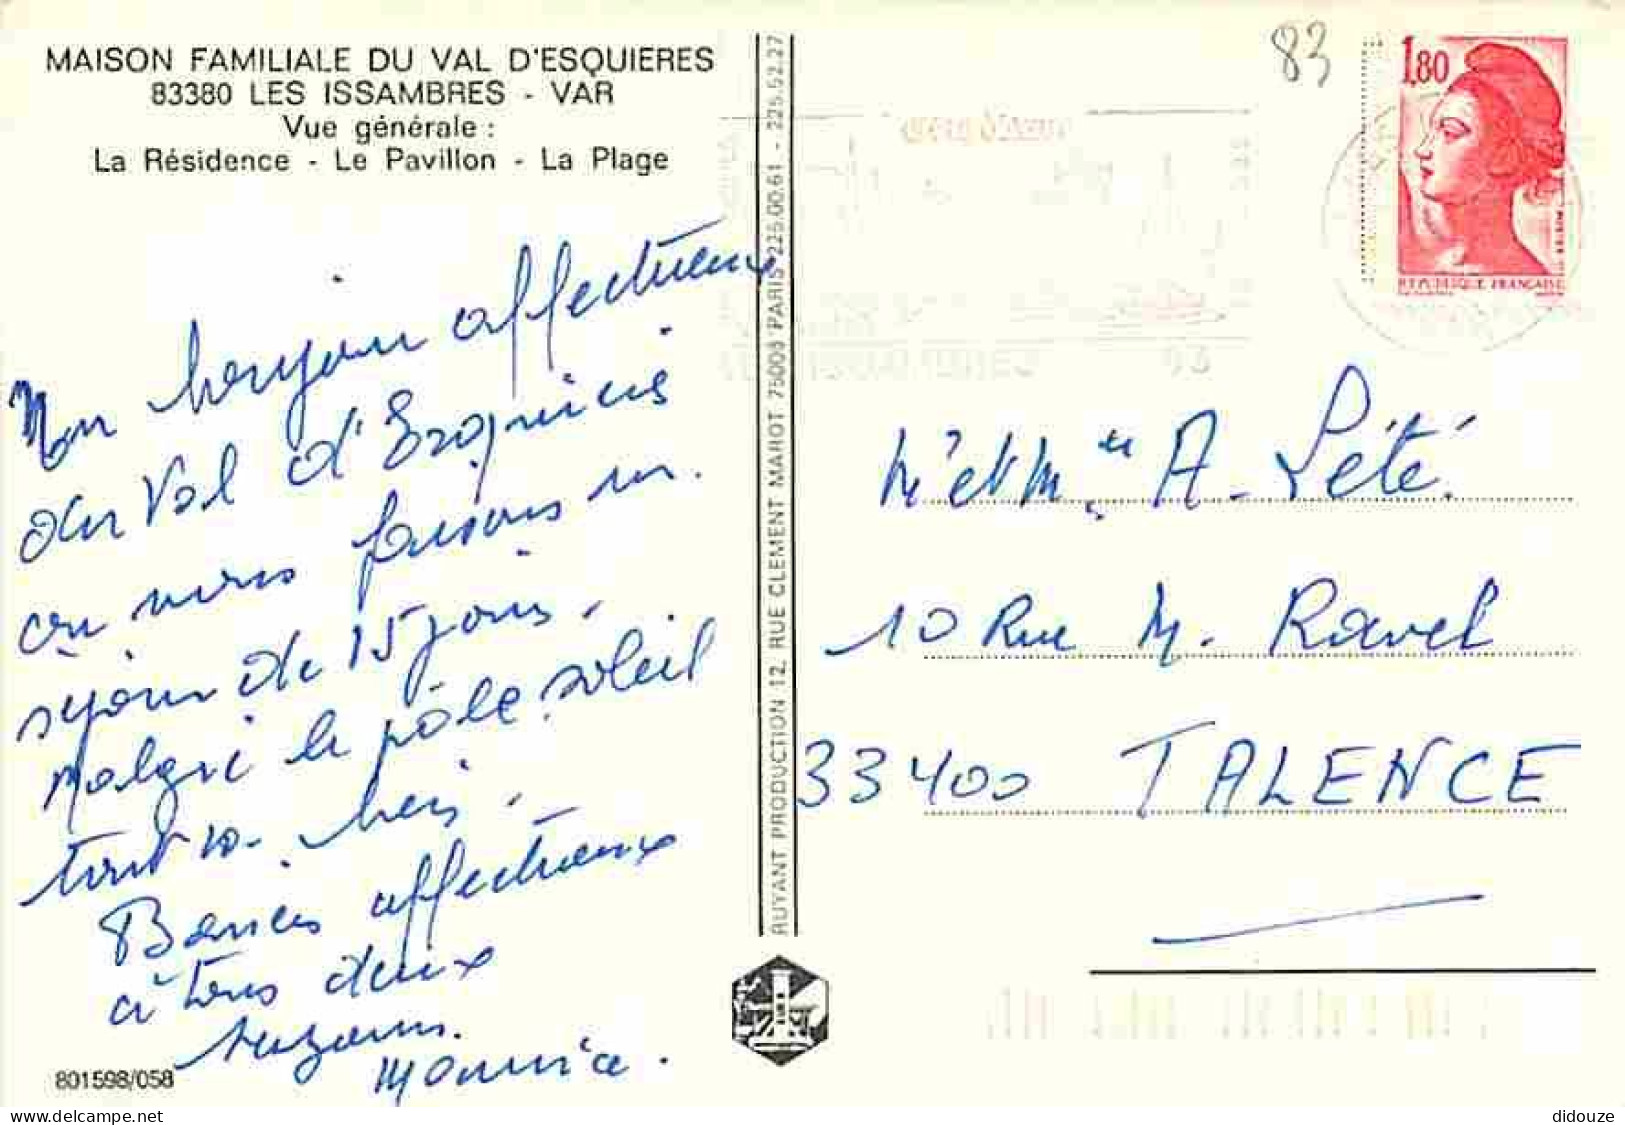 MAISON FAMILIALE DU VAL D'ESQUIERES
83380 LES ISSAMBRES - VAR
Vue générale :
La Résidence - Le Pavillon - La Plage
Mon bonjour affectueux
du Val d'Esquières
où nous faisons un
séjour de 15 jours.
Malgré le pôle soleil
tout va bien.
Baisers affectueux
à tous deux
Suzanne.
Maurice.
801598/058
RUYANT PRODUCTION 12, RUE CLEMENT MAROT 75008 PARIS 225.00.61 - 225.52.27
83
1,80
REPUBLIQUE FRANÇAISE
M. et Mme A. Lété
10 Rue M. Ravel
33400 TALENCE
delcampe.net
didouze